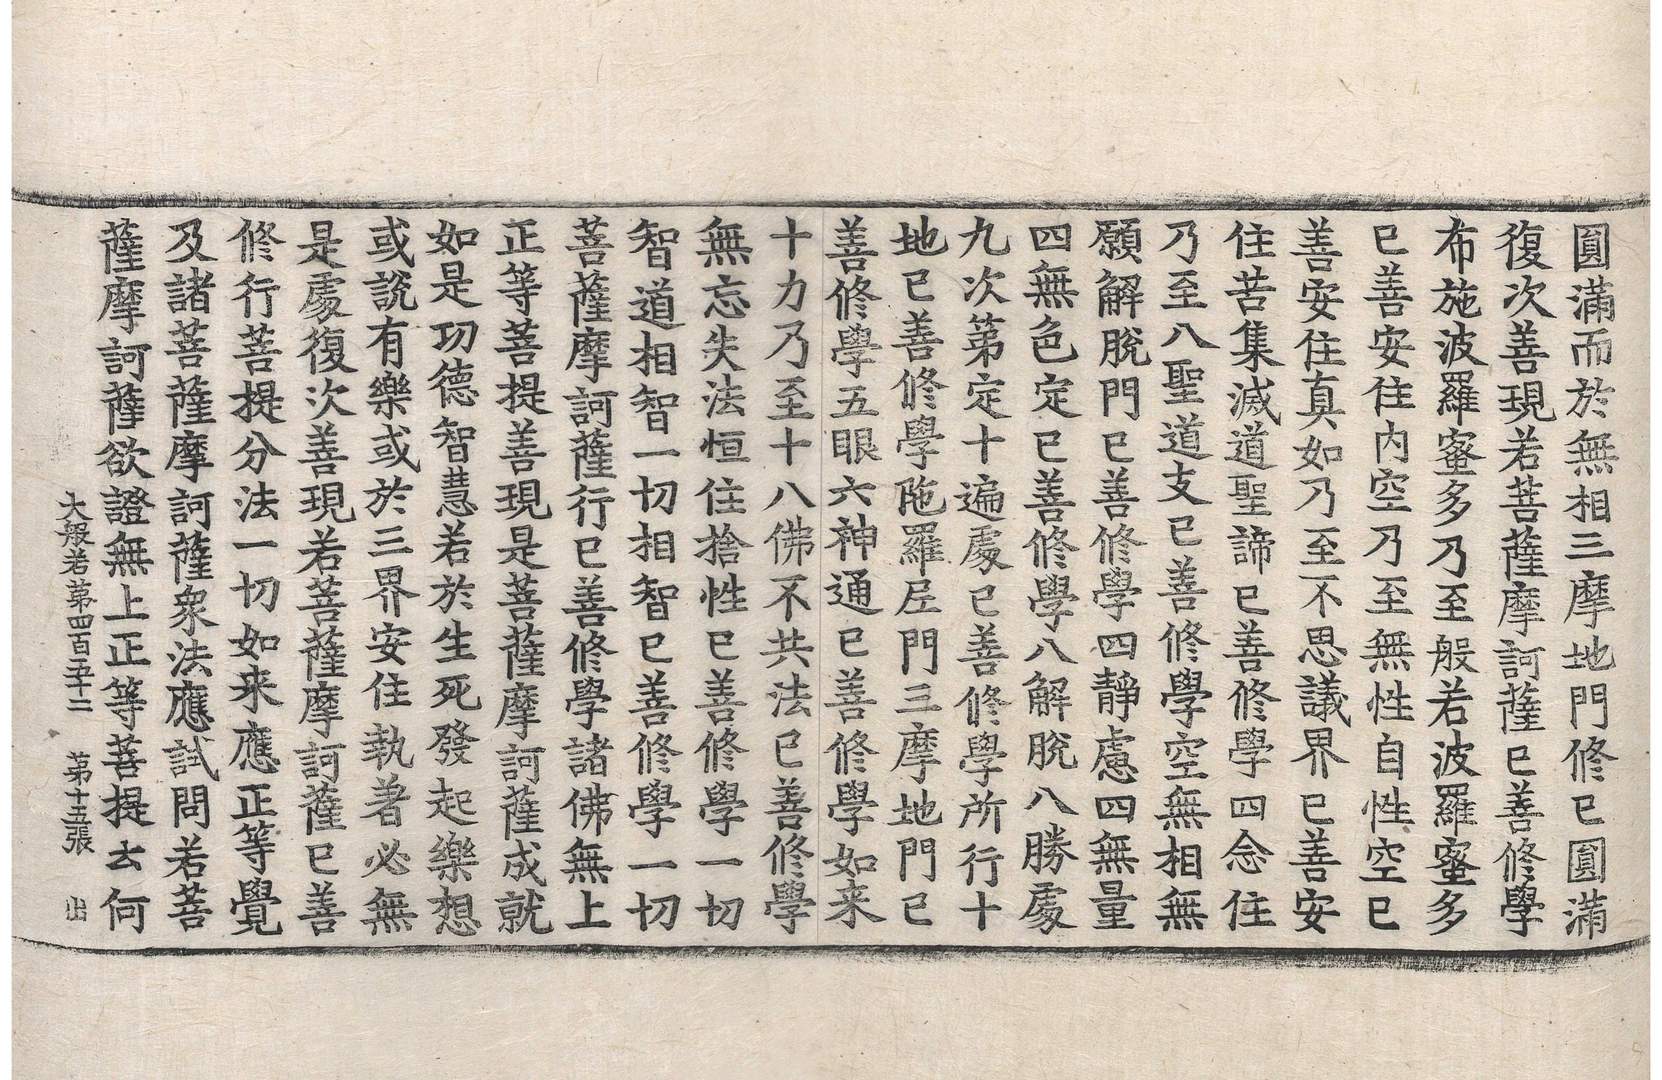 圓滿而於無相三摩地門修已圓滿
復次善現若菩薩摩訶薩已善修學
布施波羅蜜多乃至般若波羅蜜多
已善安住内空乃至無性自性空已
善安住真如乃至不思議界已善安
住苦集滅道聖諦已善修學四念住
乃至八聖道支已善修學空無相無
願解脫門已善修學四靜慮四無量
四無色定已善修學八解脫八勝處
九次第定十遍處已善修學所行十
地已善修學陁羅尼門三摩地門已
善修學五眼六神通已善修學如来
十力乃至十八佛不共法已善修學
無忘失法恒住捨性已善修學一切
智道相智一切相智已善修學一切
菩薩摩訶薩行已善修學諸佛無上
正等菩提善現是菩薩摩訶薩成就
如是功德智慧若於生死發起樂想
或說有樂或於三界安住執著必無
是處復次善現若菩薩摩訶薩已善
修行菩提分法一切如来應正等覺
及諸菩薩摩訶薩衆法應試問若菩
薩摩訶薩欲證無上正等菩提云何
大般若第四百五十二 第十五張 出